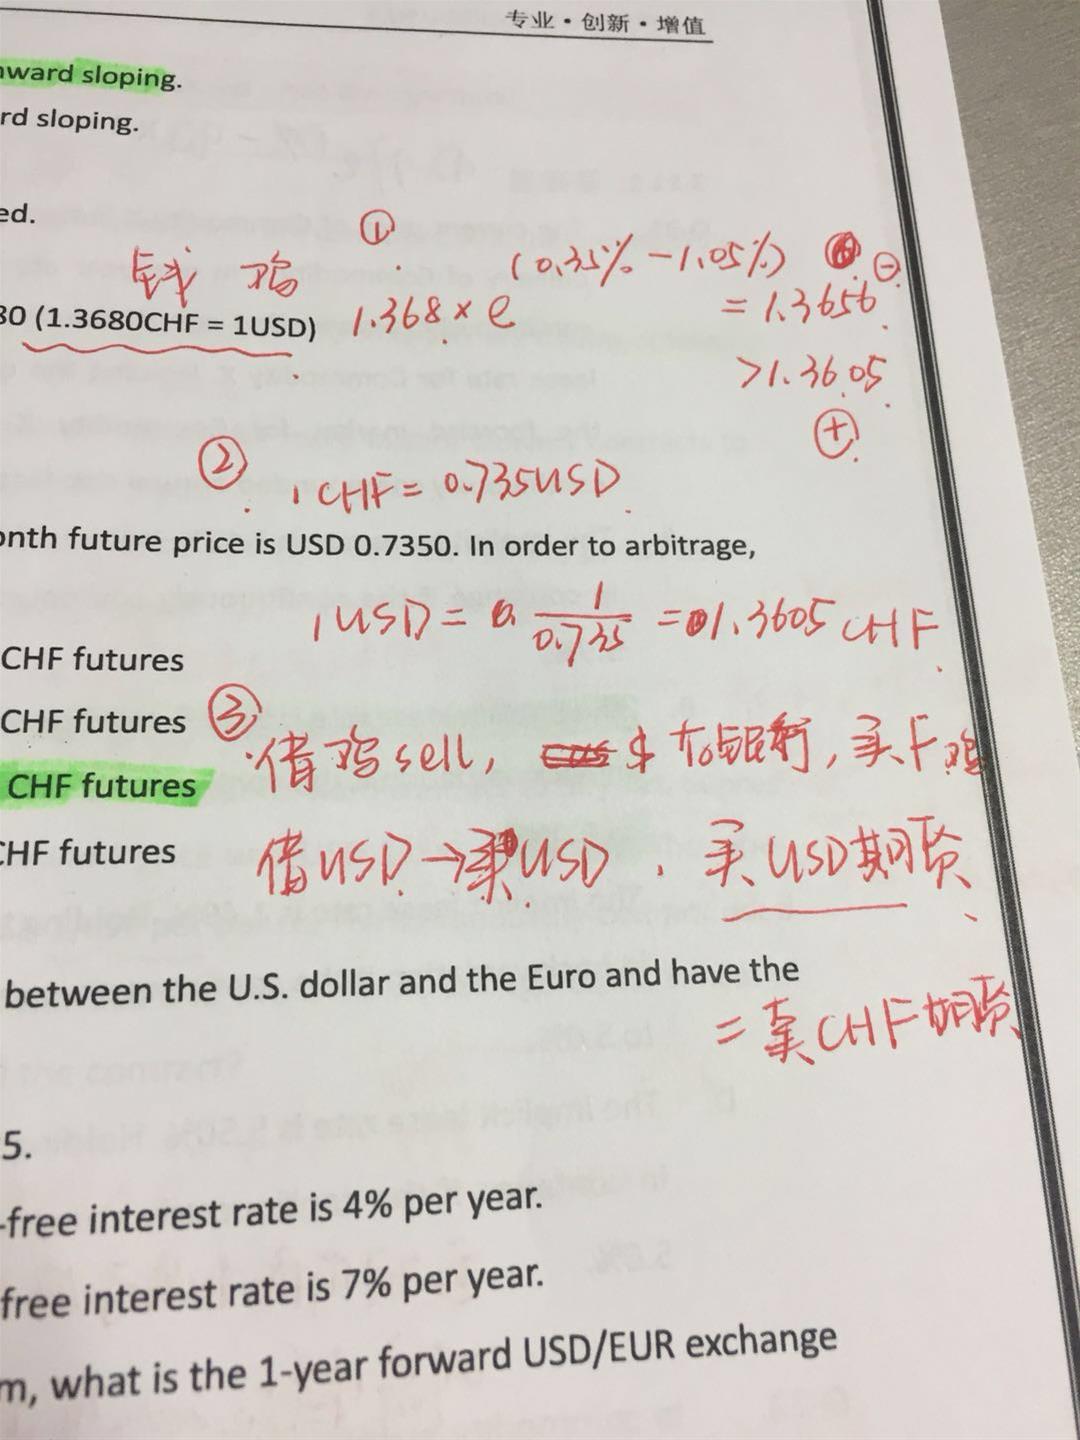 专业·创新·增值
nward sloping.
rd sloping.
ed.
①
钱 鸡
(0.35% - 1.05%) ⊖
30 (1.3680CHF = 1USD) 1.368 × e = 1.3656
>1.3605
⊕
② 1 CHF = 0.735USD
onth future price is USD 0.7350. In order to arbitrage,
1 USD = 1/0.735 = 1.3605 CHF
CHF futures
CHF futures
③ 借鸡 sell, $ to银行, 买F鸡
CHF futures
CHF futures
借USD → USD, 买USD期货
between the U.S. dollar and the Euro and have the
= 卖CHF期货
5.
-free interest rate is 4% per year.
free interest rate is 7% per year.
m, what is the 1-year forward USD/EUR exchange